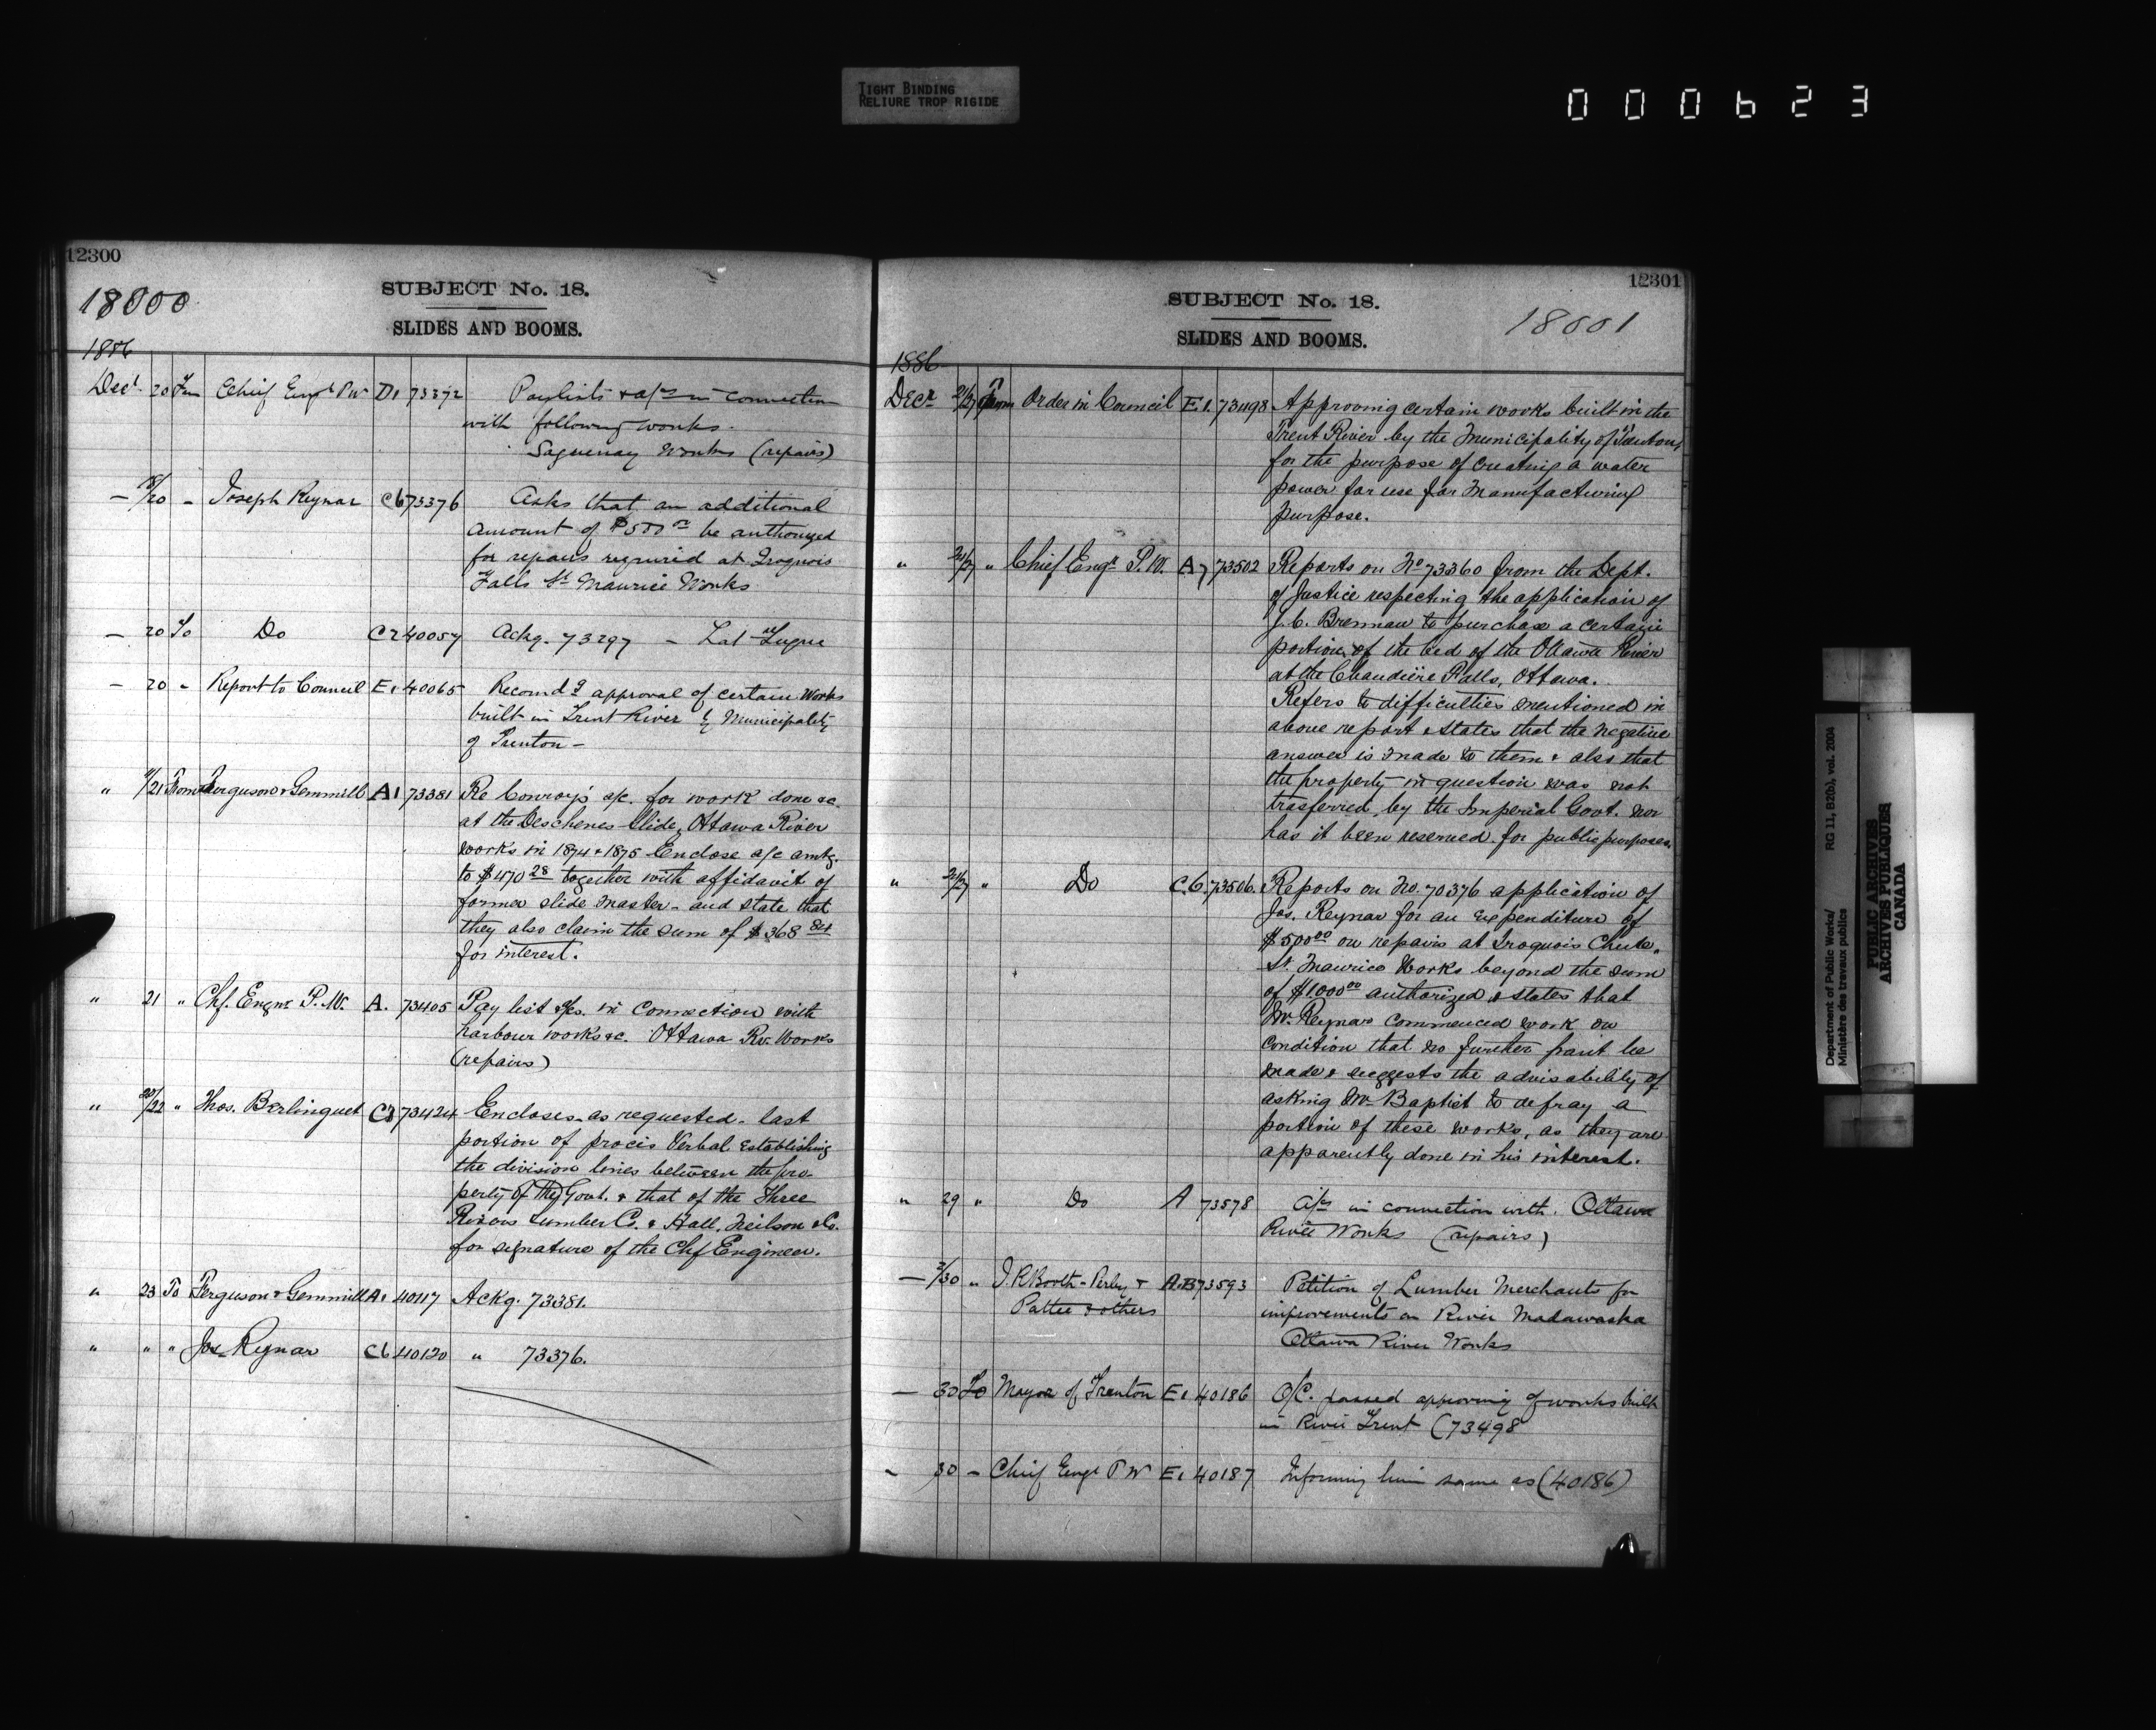 TIGHT BINDING
RELIURE TROP RIGIDE
000623
12300
18000
SUBJECT No. 18.
SLIDES AND BOOMS.
1886
Decr 20 From Chief Engr P W D1 73372 Paylists & a/cs in connection
with following works.
Saguenay Works (repairs)
— 18/20 " Joseph Reynar C6 73376 Asks that an additional
amount of $500 00 be authorized
for repairs required at Iroquois
Falls St Maurice Works
— 20 To Do C2 40057 Ackg. 73297 – Lat Tuque
— 20 " Report to Council E1 40065 Recomdg approval of certain Works
built in Trent River by Municipality
of Trenton –
" /21 From Ferguson & Gemmill A1 73381 Re Conroy's a/c. for work done &c.
at the Deschenes Slide, Ottawa River
works in 1874 & 1875 Enclose a/c amtg.
to $470 28 together with affidavit of
former slide master – and state that
they also claim the sum of $368 84
for interest.
" 21 " Chf. Engnr P. W. A. 73405 Pay list a/cs. in connection with
harbour works &c. Ottawa Rv. Works
(repairs)
" 20/22 " Thos. Berlinguet C 73424 Encloses – as requested – last
portion of procis Verbal establishing
the division lines between the pro-
perty of the Govt. & that of the Three
Rivers Lumber Co. & Hall, Neilson & Co.
for signature of the Chf Engineer.
" 23 To Ferguson & Gemmill A1 40117 Ackg. 73381.
" " " Jos. Reynar C6 40120 " 73376.
12301
SUBJECT No. 18.
18001
SLIDES AND BOOMS.
1886
Decr 21/27 From Order in Council E1. 73498 Approving certain works built in the
Trent River by the Municipality of Trenton,
for the purpose of creating a water
power for use for manufacturing
purpose.
" 24/27 " Chief Engr P. W. A7 73502 Reports on No 73360 from the Dept.
of Justice respecting the application of
J. C. Brennan to purchase a certain
portion of the bed of the Ottawa River
at the Chaudière Falls, Ottawa.
Refers to difficulties mentioned in
above report & states that the negative
answer is made to them & also that
the property in question was not
trasferred, by the Imperial Govt. nor
has it been reserved for public purposes.
" 24/27 " Do C.6. 73506. Reports on No. 70376 application of
Jos. Reynar for an expenditure of
$500 00 on repairs at Iroquois Chute,
St. Maurice Works beyond the sum
of $1000 00 authorized & states that
Mr. Reynar commenced work on
condition that no further grant be
made & suggests the advisability of
asking Mr. Baptist to defray a
portion of these works, as they are
apparently done in his interest.
" 29 " Do A 73578 a/cs in connection with. Ottawa
River Works (repairs)
— /30 " J. R Booth – Perley & A.B 73593 Petition of Lumber Merchants for
Pattee & others improvements on River Madawaska
Ottawa River Works
— 30 To Mayor of Trenton E1 40186 O/C. passed approving of works built
in River Trent (73498
– 30 – Chief Engr P W E1 40187 Informing him same as (40186)
Department of Public Works/
Ministère des travaux publics
RG 11, B2(b), vol. 2004
PUBLIC ARCHIVES
ARCHIVES PUBLIQUES
CANADA